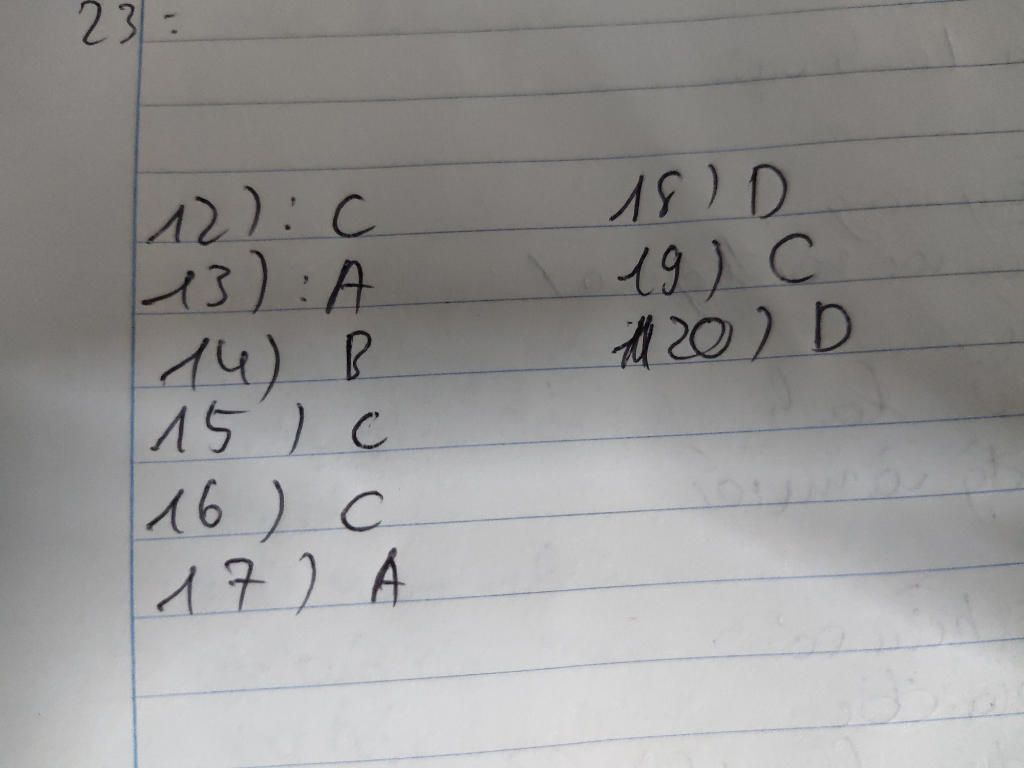 23:
12): C
13): A
14) B
15) C
16) C
17) A
18) D
19) C
20) D